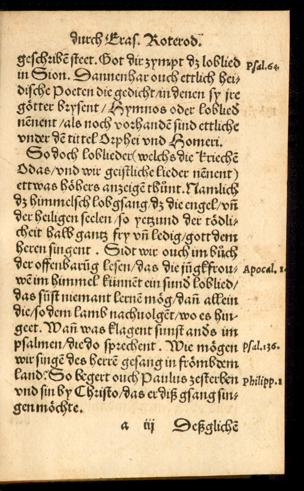 durch Eras. Roterod.
geschribē steet. Got dir zympt dz loblied Psal.64.
in Sion. Dannenhar ouch ettlich hei-
dische Poeten die gedicht/in denen sy jre
götter brysent/Hymnos oder loblied
nēnent/als noch vorhandē sind ettliche
vnder dē tittel Orphei vnd Homeri.
So doch loblieder (welchs die Kriechē
Odas/vnd wir geistliche lieder nēnent)
ettwas höhers anzeigē thūnt. Namlich
dz himmelsch lobgsang dz die engel/vñ
der heiligen seelen/so yetzund der tödli-
cheit halb gantz fry vñ ledig/gott dem
heren singent. Sidt wir ouch im bůch
der offenbarūg lesen/das die jūgkfrou- Apocal. 14
wē im himmel künnēt ein sund loblied/
das süst niemant lernē mög/dañ allein
die/so dem lamb nachuolgēt/wo es hin-
geet. Wañ was klagent sunst ands im
psalmen/die do sprechent. Wie mögen Psal.136.
wir singē des herrē gesang in frömbdem
land? So begert ouch Paulus zesterben Philipp.1
vnd sin by Christo/das er diß gsang sin-
gen möchte.
a iij Deßglichē